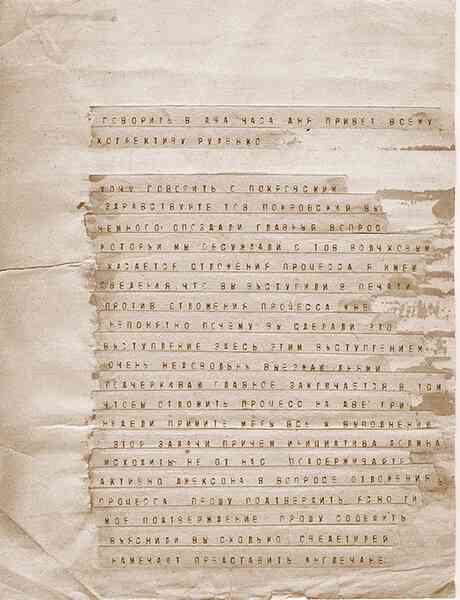 ГОВОРИТЬ В ДВА ЧАСА ДНЯ ПРИВЕТ ВСЕМУ
РУДЕНКО
ХОЧУ ГОВОРИТЬ С ПОКРОВСКИМ
ЗДРАВСТВУЙТЕ ТОВ ПОКРОВСКИЙ ВЫ
НЕМНОГО ОПОЗДАЛИ ГЛАВНЫЙ ВОПРОС
КОТОРЫЙ МЫ ОБСУЖДАЛИ С ТОВ ВОЛЧКОВЫМ
КАСАЕТСЯ ОТЛОЖЕНИЯ ПРОЦЕССА Я ИМЕЮ
СВЕДЕНИЯ ЧТО ВЫ ВЫСТУПИЛИ В ПЕЧАТИ
ПРОТИВ ОТЛОЖЕНИЯ ПРОЦЕССА МНЕ
НЕПОНЯТНО ПОЧЕМУ ВЫ СДЕЛАЛИ ЭТО
ВЫСТУПЛЕНИЕ ЗДЕСЬ ЭТИМ ВЫСТУПЛЕНИЕМ
ОЧЕНЬ НЕДОВОЛЬНЫ
ПОДЧЕРКИВАЮ ГЛАВНОЕ ЗАКЛЮЧАЕТСЯ В ТОМ
ЧТОБЫ ОТЛОЖИТЬ ПРОЦЕСС НА ДВЕ ТРИ
НЕДЕЛИ ПРИМИТЕ МЕРЫ ВСЕ К ВЫПОЛНЕНИЮ
ЭТОЙ ЗАДАЧИ ПРИЧЕМ ИНИЦИАТИВА ДОЛЖНА
ИСХОДИТЬ НЕ ОТ НАС ПОДДЕРЖИВАЙТЕ
АКТИВНО ДЖЕКСОНА В ВОПРОСЕ ОТЛОЖЕНИЯ
ПРОЦЕССА ПРОШУ ПОДТВЕРДИТЬ ЯСНО ЛИ
МОЕ ПОДТВЕРЖДЕНИЕ ПРОШУ СООБЩИТЬ
ВЫЯСНИЛИ ВЫ СКОЛЬКО СВИДЕТЕЛЕЙ
НАМЕЧАЮТ ПРЕДСТАВИТЬ АНГЛИЧАНЕ